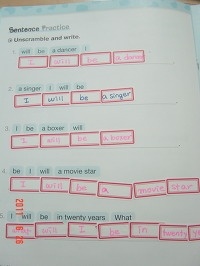 Sentence Practice
Unscramble and write.
1. will be a dancer I
I will be a dancer
2. a singer I will be
I will be a singer
3. I be a boxer will
I will be a boxer
4. be I will a movie star
I will be a movie star
5. I will be in twenty years What
will I be in twenty